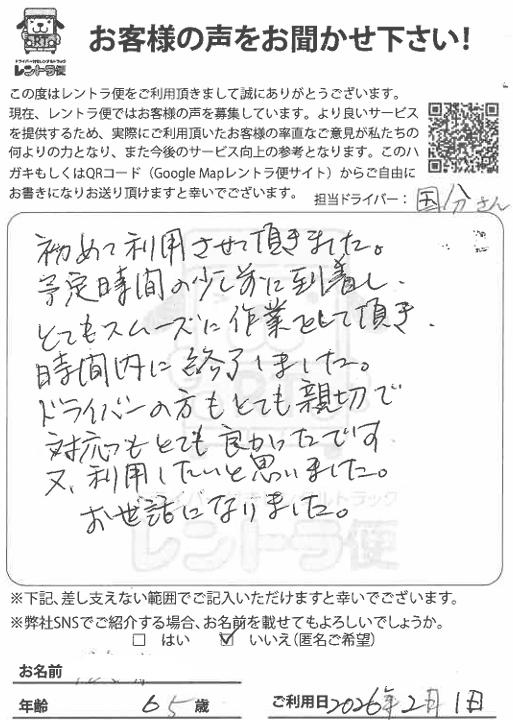 お客様の声をお聞かせ下さい!
RTO
ドライバー付レンタルトラック
レントラ便
この度はレントラ便をご利用頂きまして誠にありがとうございます。
現在、レントラ便ではお客様の声を募集しています。より良いサービス
を提供するため、実際にご利用頂いたお客様の率直なご意見が私たちの
何よりの力となり、また今後のサービス向上の参考となります。このハ
ガキもしくはQRコード（Google Mapレントラ便サイト）からご自由に
お書きになりお送り頂けますと幸いでございます。
担当ドライバー： 国分さん
初めて利用させて頂きました。
予定時間の少し前に到着し、
とてもスムーズに作業をして頂き、
時間内に終了しました。
ドライバーの方もとても親切で
対応もとても良かったです
又、利用したいと思いました。
お世話になりました。
ドライバー付レンタルトラック
レントラ便
※下記、差し支えない範囲でご記入いただけますと幸いでございます。
※弊社SNSでご紹介する場合、お名前を載せてもよろしいでしょうか。
□ はい ☑ いいえ（匿名ご希望）
お名前
年齢 65歳 ご利用日2026年2月1日